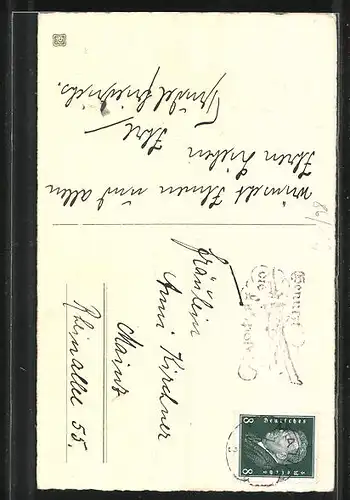 wünscht Ihnen und allen
Ihren Lieben
Ihre
Fräulein
Anni Kirchner
Mainz
Rheinallee 55.
Benutzt
die
8 Deutsches 8
Reich